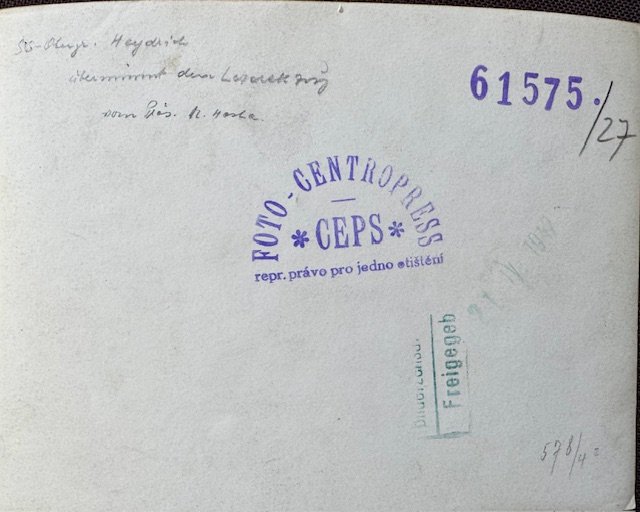 SS-Obergr. Heydrich
übernimmt den Lazarettzug
vom Präs. Hacha.
61575.
/27
FOTO-CENTROPRESS
* CEPS *
repr. právo pro jedno otištění
Freigegeb
578/42